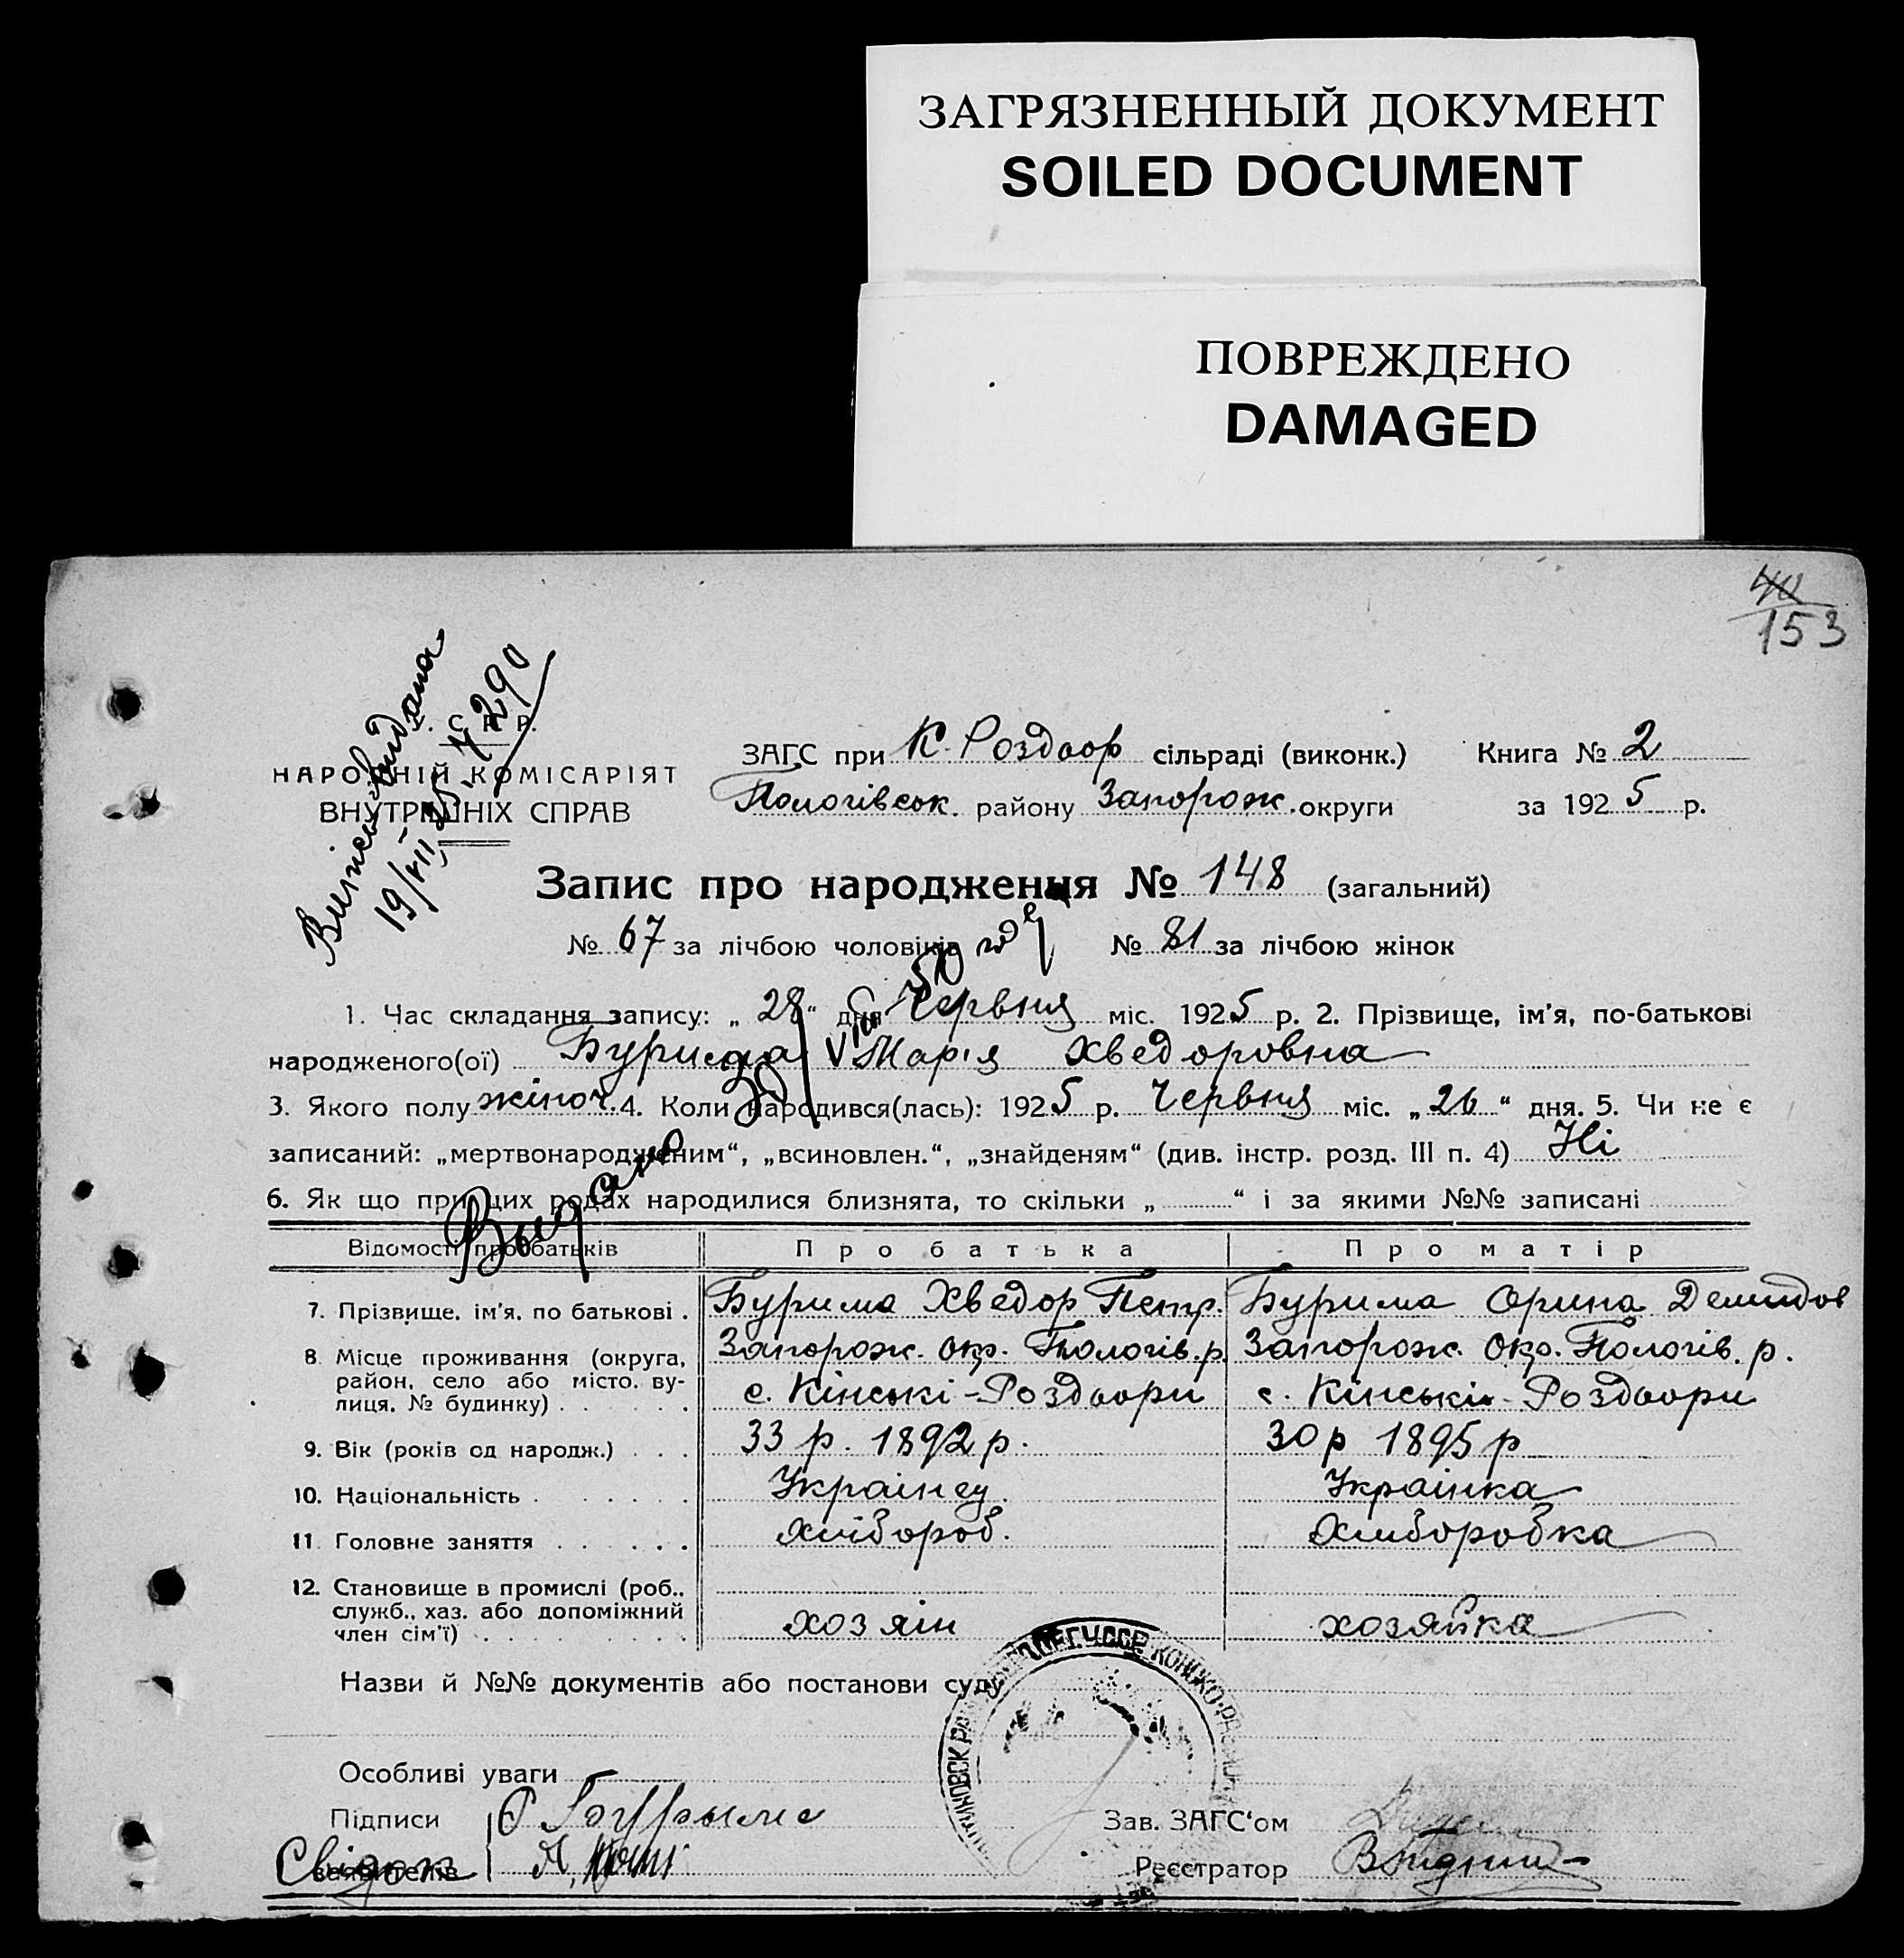 ЗАГРЯЗНЕННЫЙ ДОКУМЕНТ
SOILED DOCUMENT
ПОВРЕЖДЕНО
DAMAGED
40
153
У. С. Р. Р.
НАРОДНІЙ КОМІСАРІЯТ
ВНУТРІШНІХ СПРАВ
видана
19/VII 290
ЗАГС при К. Роздоор сільраді (виконк.) Книга № 2
Пологівськ. району Запорож. округи за 1925 р.
Запис про народження № 148 (загальний)
№ 67 за лічбою чоловіків № 81 за лічбою жінок
1. Час складання запису: „ 28 “ дня Червня міс. 1925 р. 2. Прізвище, ім'я, по-батькові
народженого(ої) Бурима Марія Хведоровна
3. Якого полу жіноч. 4. Коли народився(лась): 1925 р. Червня міс. „ 26 “ дня. 5. Чи не є
записаний: „мертвонародженим“, „всиновлен.“, „знайденям“ (див. інстр. розд. III п. 4) Ні
6. Як що при цих родах народилися близнята, то скільки „ “ і за якими №№ записані
Выдано
Відомості про батьків Про батька Про матір
7. Прізвище, ім'я, по батькові . Бурима Хведор Петр. Бурима Орина Демидов
8. Місце проживання (округа, Запорож. окр. Пологів. р. Запорож. окр. Пологів. р.
район, село або місто, ву- с. Кінські-Роздоори с. Кінські-Роздоори
лиця, № будинку) . . . . . .
9. Вік (років од народж.) . . . 33 р. 1892 р. 30 р 1895 р
10. Національність . . . . . . . Украінец. Украінка
11. Головне заняття . . . . . . Хлібороб. Хлиборобка
12. Становище в промислі (роб.,
служб., хаз. або допоміжний хозяін хозяйка
член сім'ї) . . . . . . . . .
Назви й №№ документів або постанови суду
Особливі уваги
Підписи Зав. ЗАГС'ом
Свідок
заявителів Реєстратор